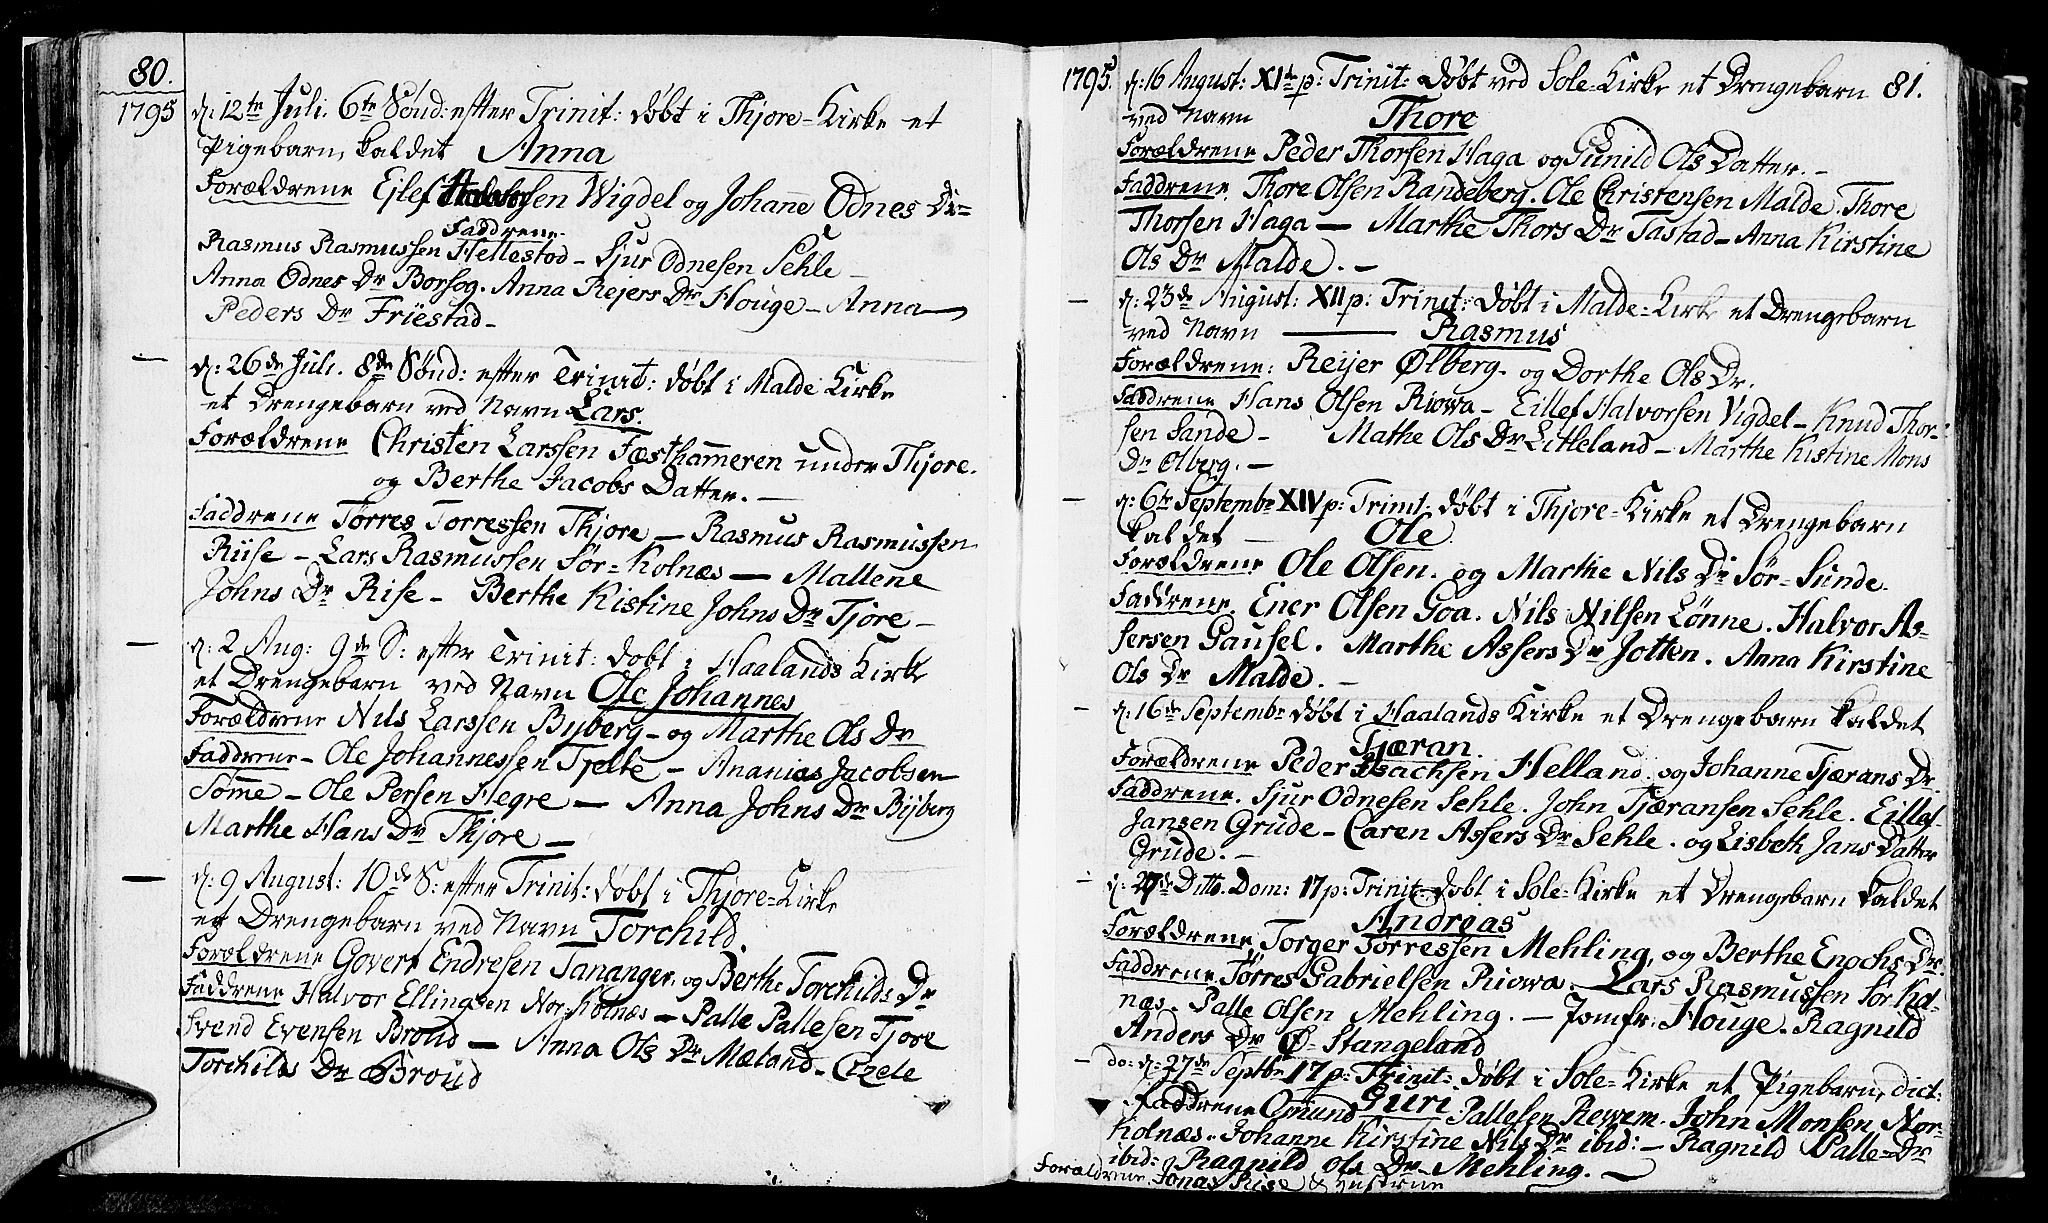 80.
1795
d: 12te Juli. 6te Sønd: efter Trinit: døbt i Thjore-Kirke et
Pigebarn, kaldet Anna
Forældrene Ejlef Halvorsen Wigdel og Johane Odnes Dr=
Faddrene.
Rasmus Rasmussen Hellestod - Sjur Odnesen Sehle -
Anna Odnes Dr Borsog. Anna Rejers Dr Houge - Anna
Peders Dr Friestad -
d: 26de Juli. 8de Sønd: efter Trinit: døbt i Malde Kirke
et Drengebarn ved Navn Lars.
Forældrene Christen Larssen Fæsthameren under Thjore.
og Berthe Jacobs Datter. -
Faddrene Tørres Torressen Thjore - Rasmus Rasmussen
Riise - Lars Rasmussen Sør-Kolnæs - Mallene
Johns Dr Rise - Berthe Kistine Johns Dr Tjore -
d: 2 Aug: 9de S: efter Trinit: døbt i Haalands Kirke
et Drengebarn ved Navn Ole Johannes
Forældrene Nils Larssen Byberg - og Marthe Ols Dr
Faddrene - Ole Johannessen Tjelte - Ananias Jacobsen
Sømme - Ole Persen Hegre - Anna Johns Dr Byberg
Marthe Hans Dr Thjore -
d: 9 August: 10de S: efter Trinit: døbt i Thjore-Kirke
et Drengebarn ved Navn Torchild
Forældrene Govert Endresen Tananger. og Berthe Torchilds Dr
Faddrene Halvor Ellingsen Nor-Kolnæs - Palle Pallesen Tjore
Svend Evensen Broud - Anna Ols Dr Mæland - Czele
Torchilds Dr Broud
1795. d: 16 August: XIte p: Trinit: døbt ved Sole-Kirke et Drengebarn 81.
ved Navn Thore
Forældrene Peder Thorsen Haga og Gunild Ols Datter. -
Faddrene. Thore Olsen Randeberg. Ole Christensen Malde. Thore
Thorsen Haga - Marthe Thors Dr Tastad - Anna Kirstine
Ols Dr Malde. -
d: 23de August: XII p: Trinit: døbt i Malde-Kirke et Drengebarn
ved Navn - Rasmus
Forældrene: Reijer Ølberg. og Dorthe Ols Dr.
Faddrene Hans Olsen Riowa - Eillef Halvorsen Vigdel - Knud Thor-
sen Sande - Mathe Ols Dr Litleland - Marthe Kistine Mons
Dr Ølberg. -
d: 6te Septembr XIV p: Trinit. døbt i Thjore-Kirke et Drengebarn
kaldet - Ole
Forældrene Ole Olsen. og Marthe Nils Dr Sør-Sunde.
Faddrene. Ener Olsen Goa. Nils Nilsen Lønne. Halvor As-
sersen Gausel. Marthe Assers Dr Jotten. Anna Kirstine
Ols Dr Malde. -
d: 16de Septembr døbt i Haalands Kirke et Drengebarn kaldet
Tjæran.
Forældrene Peder Isachsen Helland. og Johanne Tjærans Dr.
Faddrene. Sjur Odnesen Sehle. John Tjæransen Sehle. Eillef
Jansen Grude - Caren Assers Dr Sehle. og Lisbeth Jans Datter
Grude. -
d: 27de Ditto. Dom: 17 p: Trinit døbt i Sole-Kirke et Drengebarn kaldet
Andreas
Forældrene, Torger Torressen Mehling, og Berthe Enochs Dr
Faddrene Tørres Gabrielsen Riowa. Lars Rasmussen Sør-Kol-
næs. Palle Olsen Mehling. - Jomfr: Houge. Ragnild
Anders Dr Ø-Stangeland
do: d: 27de Septbr 17 p: Trinit: døbt i Sole-Kirke et Pigebarn, dict:
Guri
Faddrene Omund Pallesen Rewem. John Monsen, Nor-
Kolnæs. Johanne Kirstine Nils Dr ibid: - Ragnild Palle-Dr
ibid: og Ragnild Ols Dr Mehling. -
Forældrene Jonas Rise &